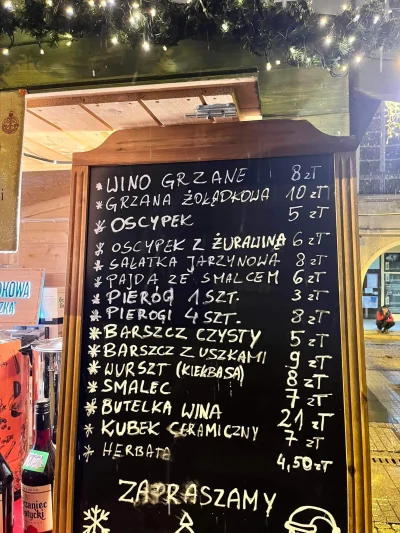 * WINO GRZANE 8 zł
* GRZANA ŻOŁĄDKOWA 10 zł
* OSCYPEK 5 zł
* OSCYPEK Z ŻURAWINĄ 6 zł
* SAŁATKA JARZYNOWA 8 zł
* PAJDA ZE SMALCEM 6 zł
* PIERÓG 1 SZT. 3 zł
* PIEROGI 4 SZT. 8 zł
* BARSZCZ CZYSTY 5 zł
* BARSZCZ Z USZKAMI 9 zł
* WURSZT (KIEŁBASA) 8 zł
* SMALEC 7 zł
* BUTELKA WINA 21 zł
* KUBEK CERAMICZNY 7 zł
* HERBATA 4,50 zł
ZAPRASZAMY
DKOWA
ZKA